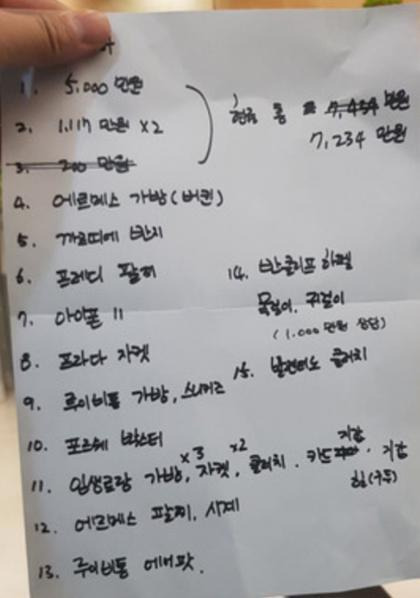 1. 5,000 만원
2. 1,117 만원 x2
현금 총 7,434 만원
7,234 만원
3. 200 만원
4. 에르메스 가방 (버킨)
5. 까르띠에 반지
6. 프레디 팔찌
7. 아이폰 11
8. 프라다 자켓
9. 루이비통 가방, 스니커즈
10. 포르쉐 박스터
11. 입생로랑 가방 x3, 자켓 x2, 클러치, 카드지갑, 지갑
힐(구두)
12. 에르메스 팔찌, 시계
13. 루이비통 에어팟.
14. 반클리프 아펠
목걸이, 귀걸이
(1,000 만원 상당)
15. 발렌티노 클러치